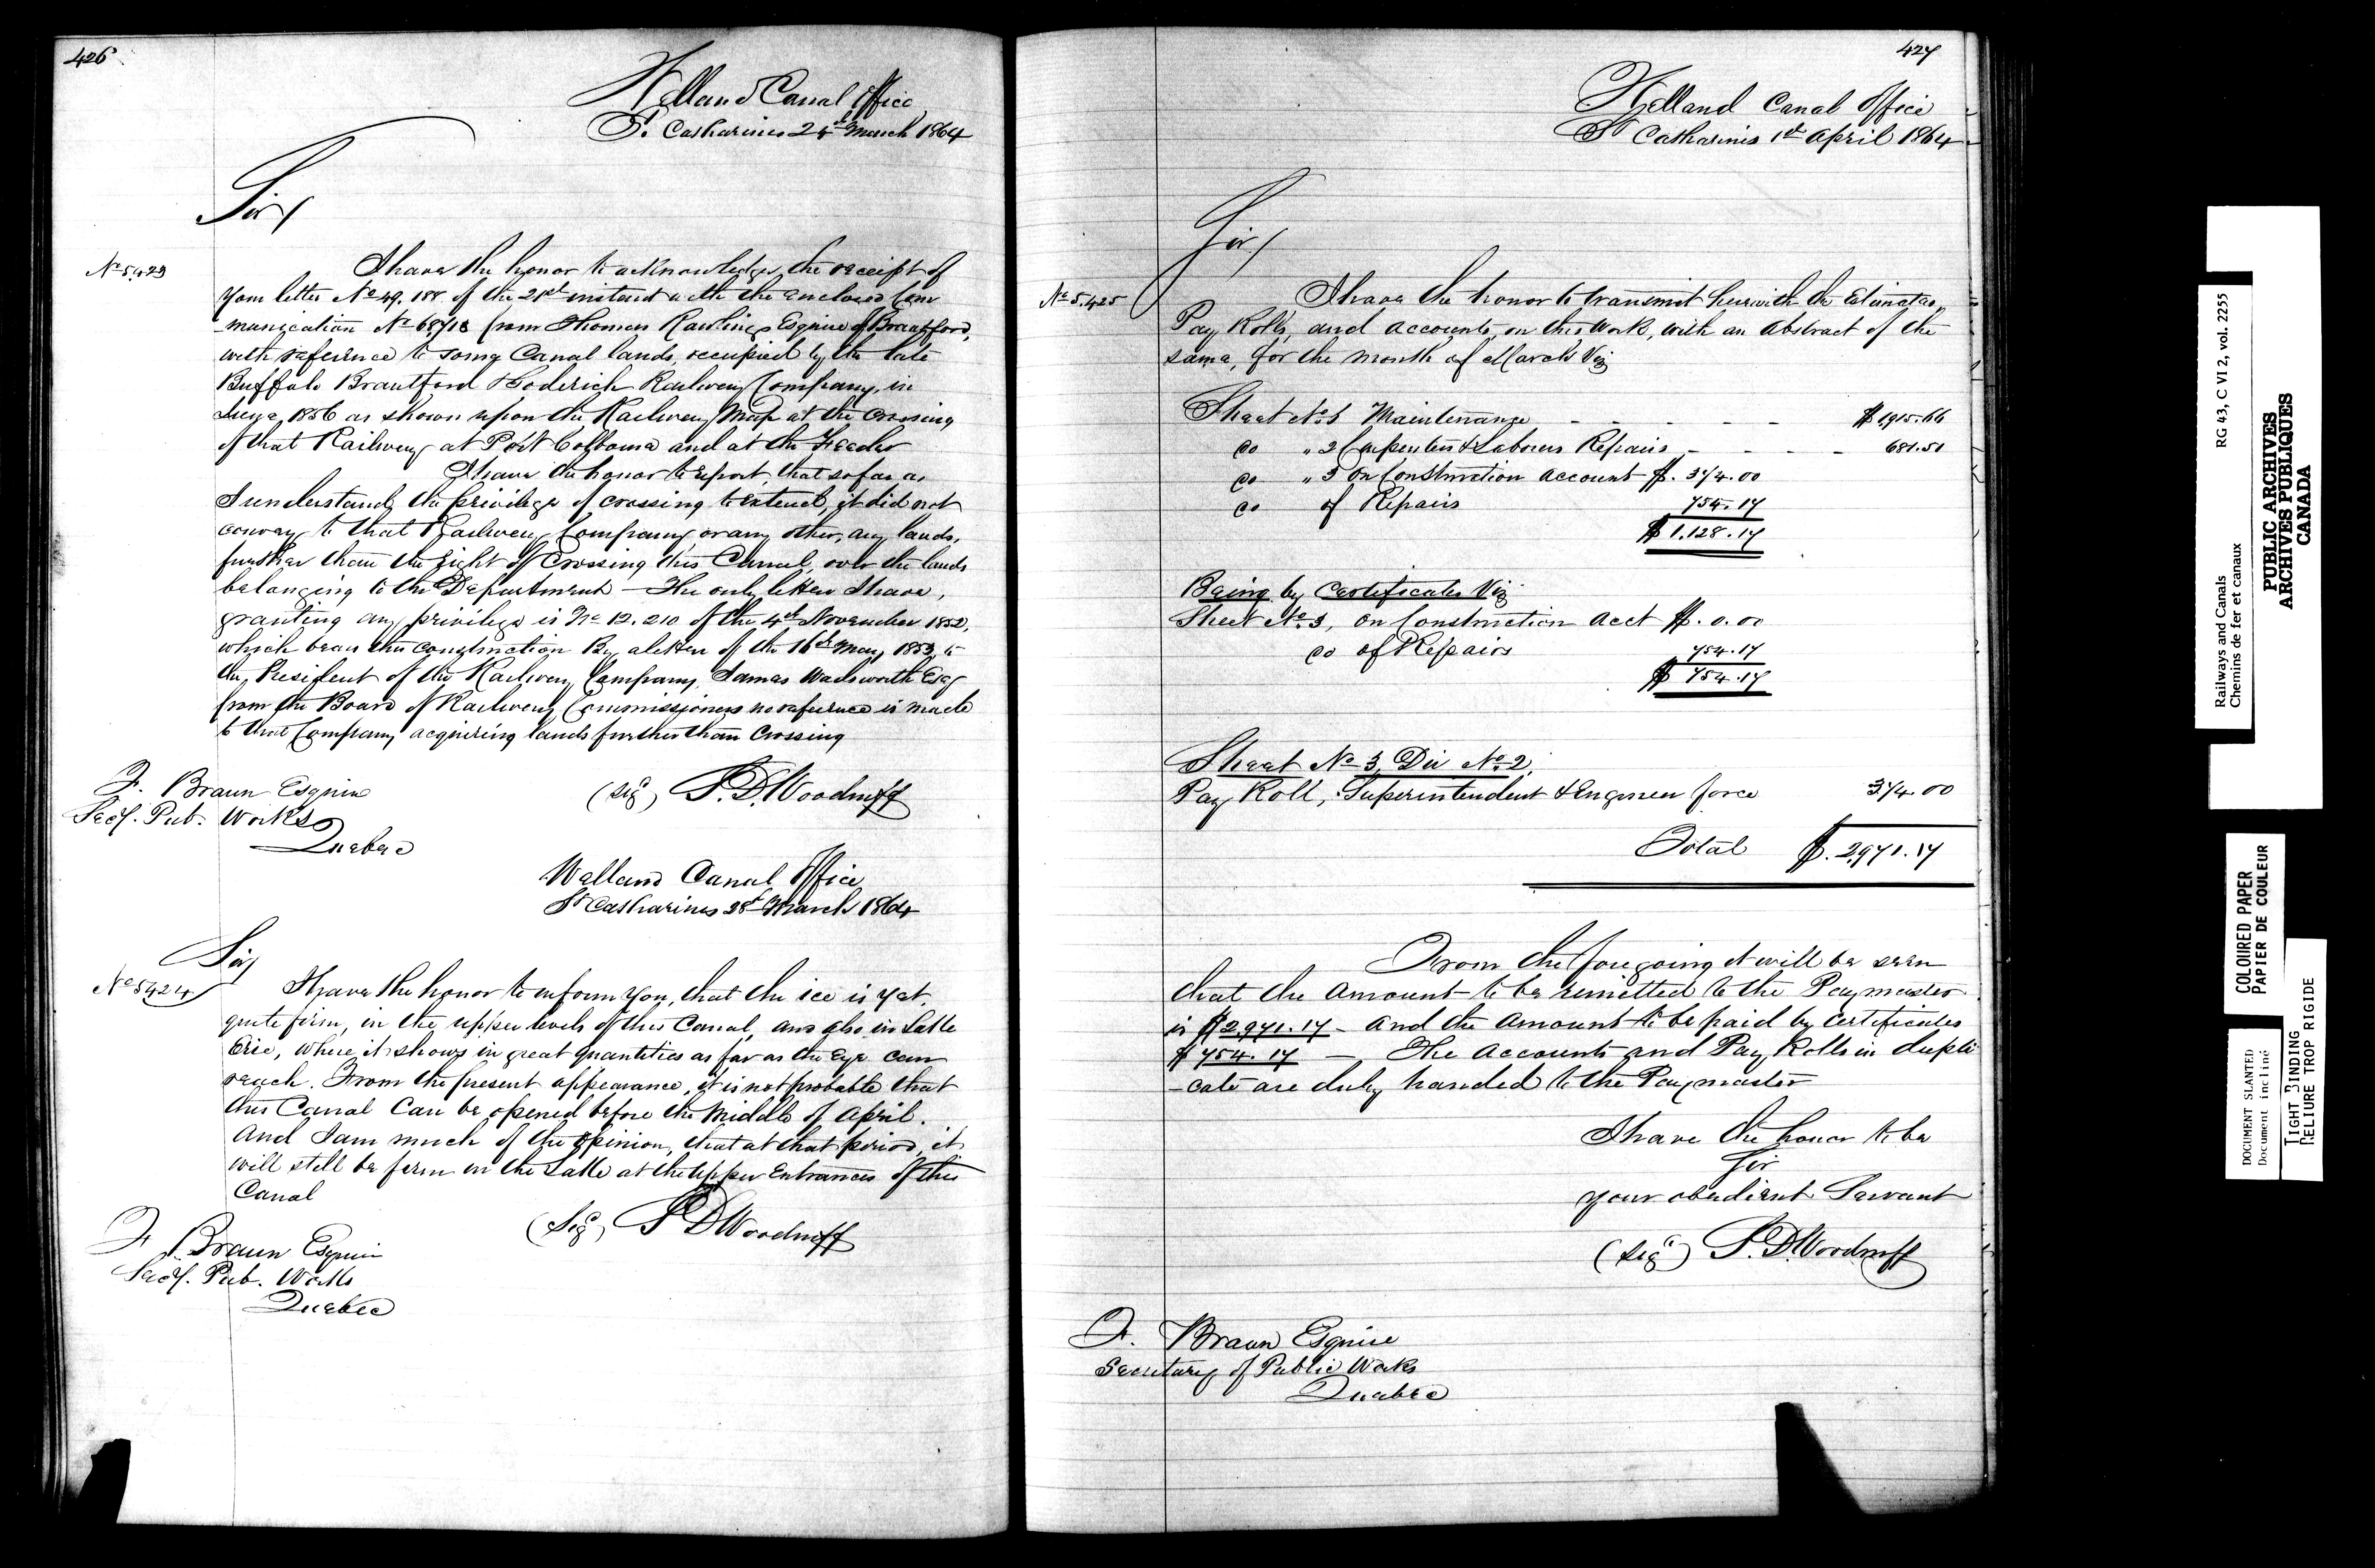 426
Welland Canal Office
St. Catharines 24th March 1864
Sir/
No 5.423
I have the honor to acknowledge the receipt of
your letter No 49.188 of the 21st instant with the enclosed Com
-munication No 68718 from Thomas Rawlings Esquire of Brantford,
with reference to some Canal lands, occupied by the late
Buffalo Brantford & Goderich Railway Company, in
1856 as shown upon the Railway Map at the crossing
of that Railway at Port Colborne and at the Feeder
I have the honor to report, that so far as
I understand the privilege of crossing to extend, it did not
convey to that Railway Company or any other, any lands,
further than the right of Crossing this Canal, over the lands
belonging to the Department — The only letter I have,
granting any privilege is No 12.210 of the 4th November 1852,
which bears this construction By a letter of the 16th May 1853, to
the President of the Railway Company James Wadsworth Esq
from the Board of Railway Commissioners no reference is made
to that Company acquiring lands further than Crossing
F. Braun Esquire
Secy. Pub. Works
Quebec
(Sigd) S. D. Woodruff
Welland Canal Office
St Catharines 28th March 1864
Sir/
No 5424
I have the honor to inform you, that the ice is yet
quite firm, in the upper levels of this Canal, and also in Lake
Erie, where it shows in great quantities as far as the Eye can
reach. From the present appearance, it is not probable that
this Canal can be opened before the Middle of April.
And I am much of the opinion, that at that period, it
will still be firm in the Lake at the Upper Entrances of this
Canal
(Sigd) S D Woodruff
F Braun Esquire
Secy. Pub. Works
Quebec
427
Welland Canal Office
St Catharines 1st April 1864
Sir/
No 5.425
I have the honor to transmit herewith the Estimates,
Pay Rolls, and Accounts, on this Work, with an Abstract of the
same, for the month of March Viz
Sheet No. 1 Maintenance - - - - - $ 1,915.66
do " 2 Carpenters & Laborers Repairs - - - - 681.51
do " 3 On Construction Account $. 374.00
do of Repairs 754.17
$ 1.128.17
Being by Certificates Viz
Sheet No. 3, On Construction Acct $. 0.00
do of Repairs 754.17
$ 754.17
Sheet No 3, Div No. 2,
Pay Roll, Superintendent & Engineer force 374.00
Total $. 2,971.17
From the foregoing it will be seen
that the Amount to be remitted to the Paymaster
is $2,971.17 - And the Amount to be paid by Certificates
$ 754.17 — The Accounts and Pay Rolls in dupli
-cate are duly handed to the Paymaster
I have the honor to be
Sir
your obedient Servant
(Sigd) S. D. Woodruff
F. Braun Esquire
Secretary of Public Works
Quebec
RG 43, C VI 2, vol. 2255
Railways and Canals
Chemins de fer et canaux
PUBLIC ARCHIVES
ARCHIVES PUBLIQUES
CANADA
COLOURED PAPER
PAPIER DE COULEUR
DOCUMENT SLANTED
Document incliné
TIGHT BINDING
RELIURE TROP RIGIDE